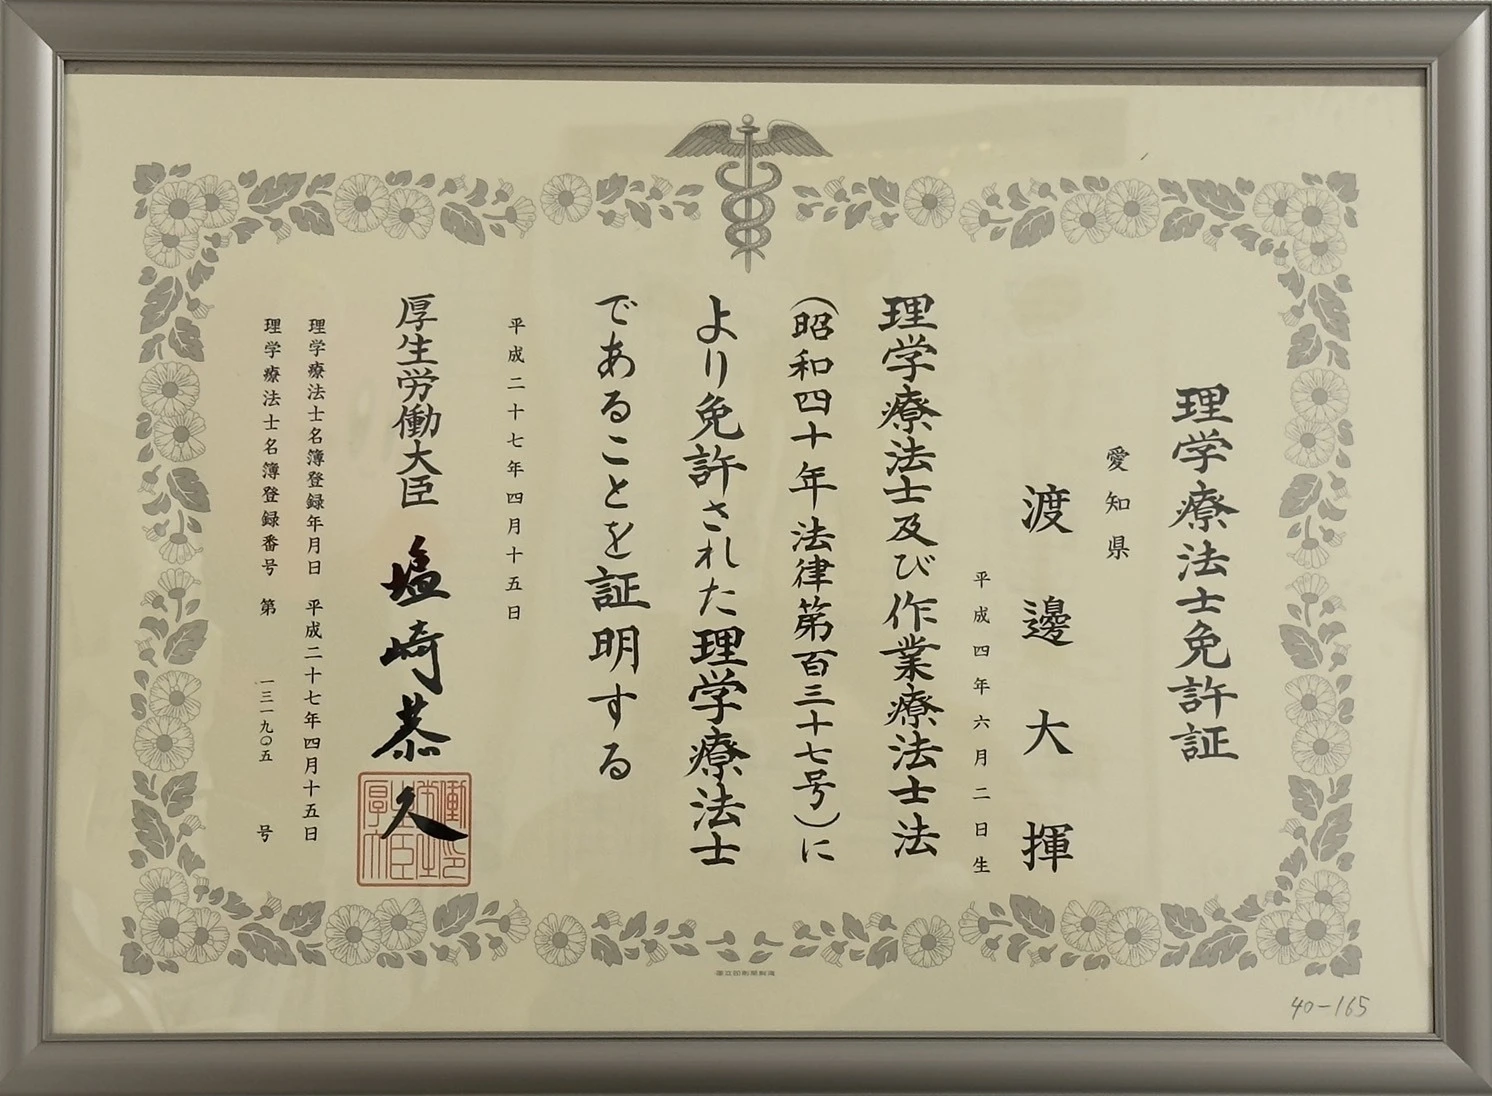 理学療法士免許証
愛知県
渡邊大揮
平成四年六月二日生
理学療法士及び作業療法士法
（昭和四十年法律第百三十七号）に
より免許された理学療法士
であることを証明する
平成二十七年四月十五日
厚生労働大臣 塩崎恭久
理学療法士名簿登録年月日 平成二十七年四月十五日
理学療法士名簿登録番号 第 一三一九〇五 号
国立印刷局製造
40-165